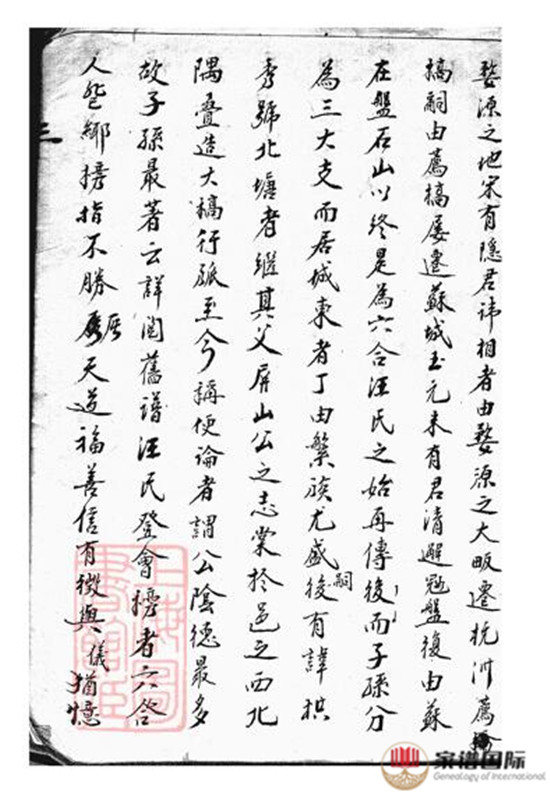 婺源之地宋有隱君諱相者由婺源之大畈遷杭州薦橋
橋嗣由薦橋屢遷蘇城至元末有君清避寇盤後由蘇
在盤石山以終是為六合汪氏之始再傳後而子孫分
為三大支而居城東者丁由繁族尤盛後嗣有諱栱
秀號北塘者繼其父屏山公之志業於邑之西北
隅疊造大橋行旅至今稱便論者謂公陰德最多
故子孫最著云詳閱舊譜汪氏登會榜者六合
人至鄉榜指不勝屈天道福善信有徵與儀猶憶
三
上海圖書館藏
家谱国际
Genealogy of International